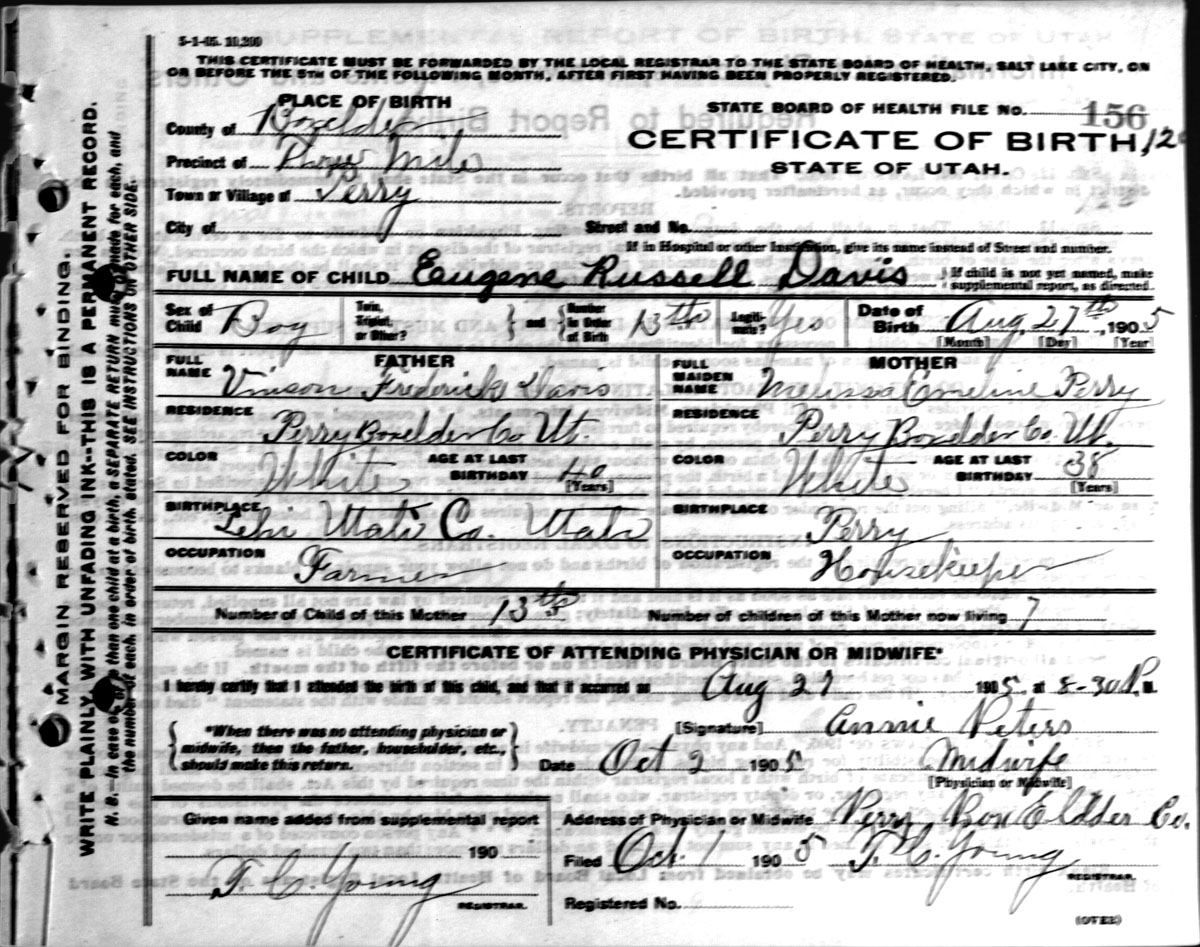 5-1-05. 10,200
THIS CERTIFICATE MUST BE FORWARDED BY THE LOCAL REGISTRAR TO THE STATE BOARD OF HEALTH, SALT LAKE CITY, ON
OR BEFORE THE 5TH OF THE FOLLOWING MONTH, AFTER FIRST HAVING BEEN PROPERLY REGISTERED.
PLACE OF BIRTH
STATE BOARD OF HEALTH FILE No. 156
County of Boxelder
CERTIFICATE OF BIRTH
Precinct of Mile
STATE OF UTAH.
Town or Village of Perry
City of Street and No.
If in Hospital or other Institution, give its name instead of Street and number.
FULL NAME OF CHILD Eugene Russell Davis
If child is not yet named, make
supplemental report, as directed.
Sex of Child Boy
Twin, Triplet, or Other? and Number in Order of Birth 13th
Legitimate? Yes
Date of Birth Aug 27th, 1905
[Month] [Day] [Year]
FATHER
MOTHER
FULL NAME Vinson Frederick Davis
FULL MAIDEN NAME Melissa Emeline Perry
RESIDENCE Perry Boxelder Co Ut.
RESIDENCE Perry Boxelder Co. Ut.
COLOR White AGE AT LAST BIRTHDAY 40 [Years]
COLOR White AGE AT LAST BIRTHDAY 38 [Years]
BIRTHPLACE Lehi Utah Co. Utah
BIRTHPLACE Perry
OCCUPATION Farmer
OCCUPATION Housekeeper
Number of Child of this Mother 13th Number of children of this Mother now living 7
CERTIFICATE OF ATTENDING PHYSICIAN OR MIDWIFE*
I hereby certify that I attended the birth of this child, and that it occurred on Aug 27 1905, at 8-30 P. M.
*When there was no attending physician or
midwife, then the father, householder, etc.,
should make this return.
[Signature] Annie Peters
Date Oct 2 1905 Midwife
[Physician or Midwife]
Given name added from supplemental report
190
T. C. Young
REGISTRAR.
Address of Physician or Midwife Perry Box Eldder Co.
Filed Oct. 1 1905 T. C. Young
REGISTRAR.
Registered No.
(OVER)
MARGIN RESERVED FOR BINDING.
WRITE PLAINLY WITH UNFADING INK--THIS IS A PERMANENT RECORD.
N. B.—In case of more than one child at a birth, a SEPARATE RETURN must be made for each, and
the number of each, in order of birth, stated. SEE INSTRUCTIONS ON OTHER SIDE.